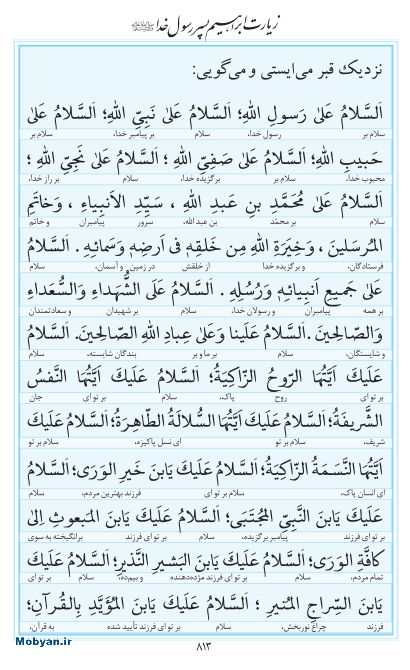 زیارت ابراهیم پسر رسول خدا ﷺ
نزدیک قبر می‌ایستی و می‌گویی:
اَلسَّلامُ عَلیٰ رَسولِ اللهِ؛ اَلسَّلامُ عَلیٰ نَبِیِّ اللهِ؛ اَلسَّلامُ عَلیٰ
سلام بر رسول خدا، سلام بر پیامبر خدا، سلام بر
حَبیبِ اللهِ؛ اَلسَّلامُ عَلیٰ صَفِیِّ اللهِ؛ اَلسَّلامُ عَلیٰ نَجِیِّ اللهِ؛
محبوب خدا، سلام بر برگزیده خدا، سلام بر راز خدا،
اَلسَّلامُ عَلیٰ مُحَمَّدِ بنِ عَبدِ اللهِ ، سَیِّدِ الاَنبِیاءِ ، وَخاتَمِ
سلام بر محمّد بن عبدالله، سرور پیامبران و خاتم
المُرسَلینَ ، وَخِیَرَةِ اللهِ مِن خَلقِهِ فی اَرضِهِ وَسَمائِهِ . اَلسَّلامُ
فرستادگان، و برگزیده خدا از خلقش در زمین و آسمان، سلام
عَلیٰ جَمیعِ اَنبِیائِهِ وَرُسُلِهِ . اَلسَّلامُ عَلَی الشُّهَداءِ وَالسُّعَداءِ
بر همه پیامبران و رسولان خدا، سلام بر شهیدان و سعادتمندان
وَالصّالِحینَ .اَلسَّلامُ عَلَینا وَعَلیٰ عِبادِ اللهِ الصّالِحینَ. اَلسَّلامُ
و شایستگان، سلام بر ما و بر بندگان شایسته، سلام
عَلَیكَ اَیَّتُهَا الرّوحُ الزّاکِیَةُ؛ اَلسَّلامُ عَلَیكَ اَیَّتُهَا النَّفسُ
بر تو ای روح پاک، سلام بر تو ای جان
الشَّریفَةُ؛ اَلسَّلامُ عَلَیكَ اَیَّتُهَا السُّلالَةُ الطّاهِرَةُ؛ اَلسَّلامُ عَلَیكَ
شریف، سلام بر تو ای نسل پاکیزه، سلام بر تو
اَیَّتُهَا النَّسَمَةُ الزّاکِیَةُ؛ اَلسَّلامُ عَلَیكَ یَابنَ خَیرِ الوَریٰ؛ اَلسَّلامُ
ای انسان پاک، سلام بر تو ای فرزند بهترین مردم، سلام
عَلَیكَ یَابنَ النَّبِیِّ المُجتَبیٰ؛ اَلسَّلامُ عَلَیكَ یَابنَ المَبعوثِ اِلیٰ
بر تو ای فرزند پیامبر برگزیده، سلام بر تو ای فرزند برانگیخته به سوی
کافَّةِ الوَریٰ؛ اَلسَّلامُ عَلَیكَ یَابنَ البَشیرِ النَّذیرِ؛ اَلسَّلامُ عَلَیكَ
تمام مردم، سلام بر تو ای فرزند مژده‌دهنده و بیم‌ده، سلام بر تو ای
یَابنَ السِّراجِ المُنیرِ ؛ اَلسَّلامُ عَلَیكَ یَابنَ المُؤَیَّدِ بِالقُرآنِ؛
فرزند چراغ نوربخش، سلام بر تو ای فرزند تأیید شده به قرآن،
٨١٣
Mobyan.ir